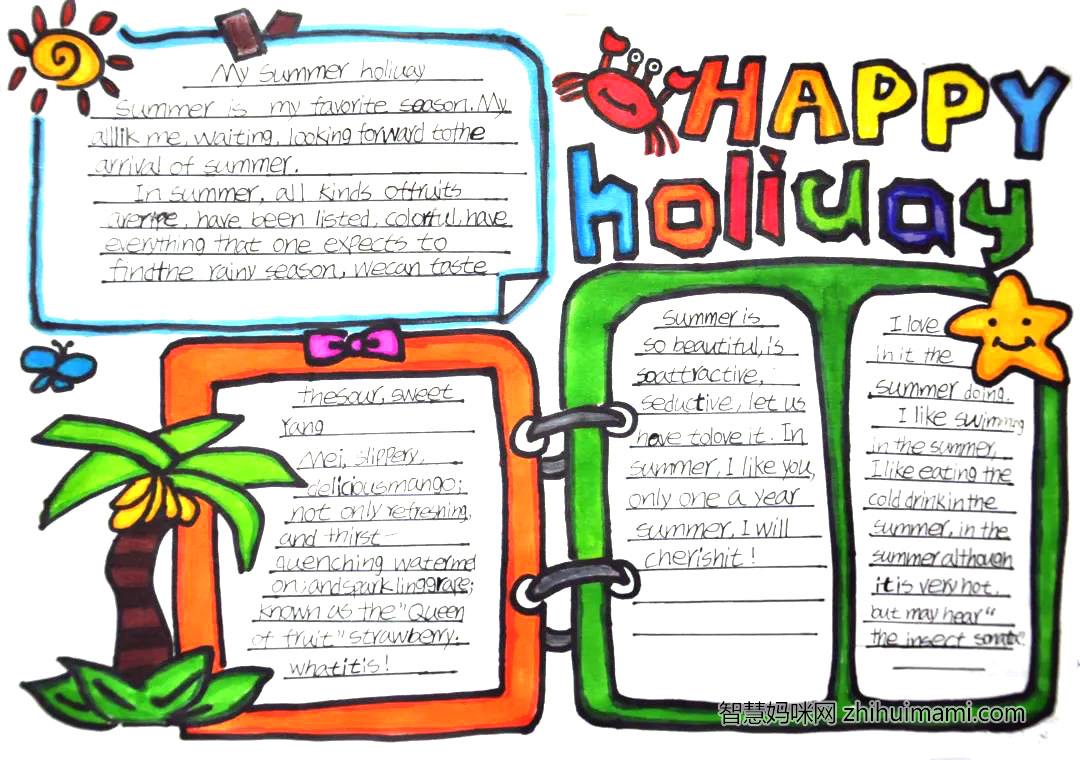 My summer holiuay
Summer is my favorite season. My
alllik me, waiting, looking forward tothe
arrival of summer.
In summer, all kinds offruits
areripe, have been listed, colorful, have
everything that one expects to
findthe rainy season, wecan taste
thesour, sweet
Yang
Mei, slippery,
deliciousmango;
not only refreshing,
and thirst-
quenching watermel
on; andsparklinggrape;
known as the "Queen
of fruit" strawberry.
whatitis!
HAPPY
holiuay
Summer is
so beautiful, is
soattractive,
seductive, let us
have tolove it. In
summer, I like you,
only one a year
summer, I will
cherishit!
I love
in it the
summer doing.
I like swimming
in the summer,
I like eating the
cold drinkinthe
summer, in the
summer although
it is very hot,
but may hear"
the insect sonata".
智慧妈咪网 zhihuimami.com